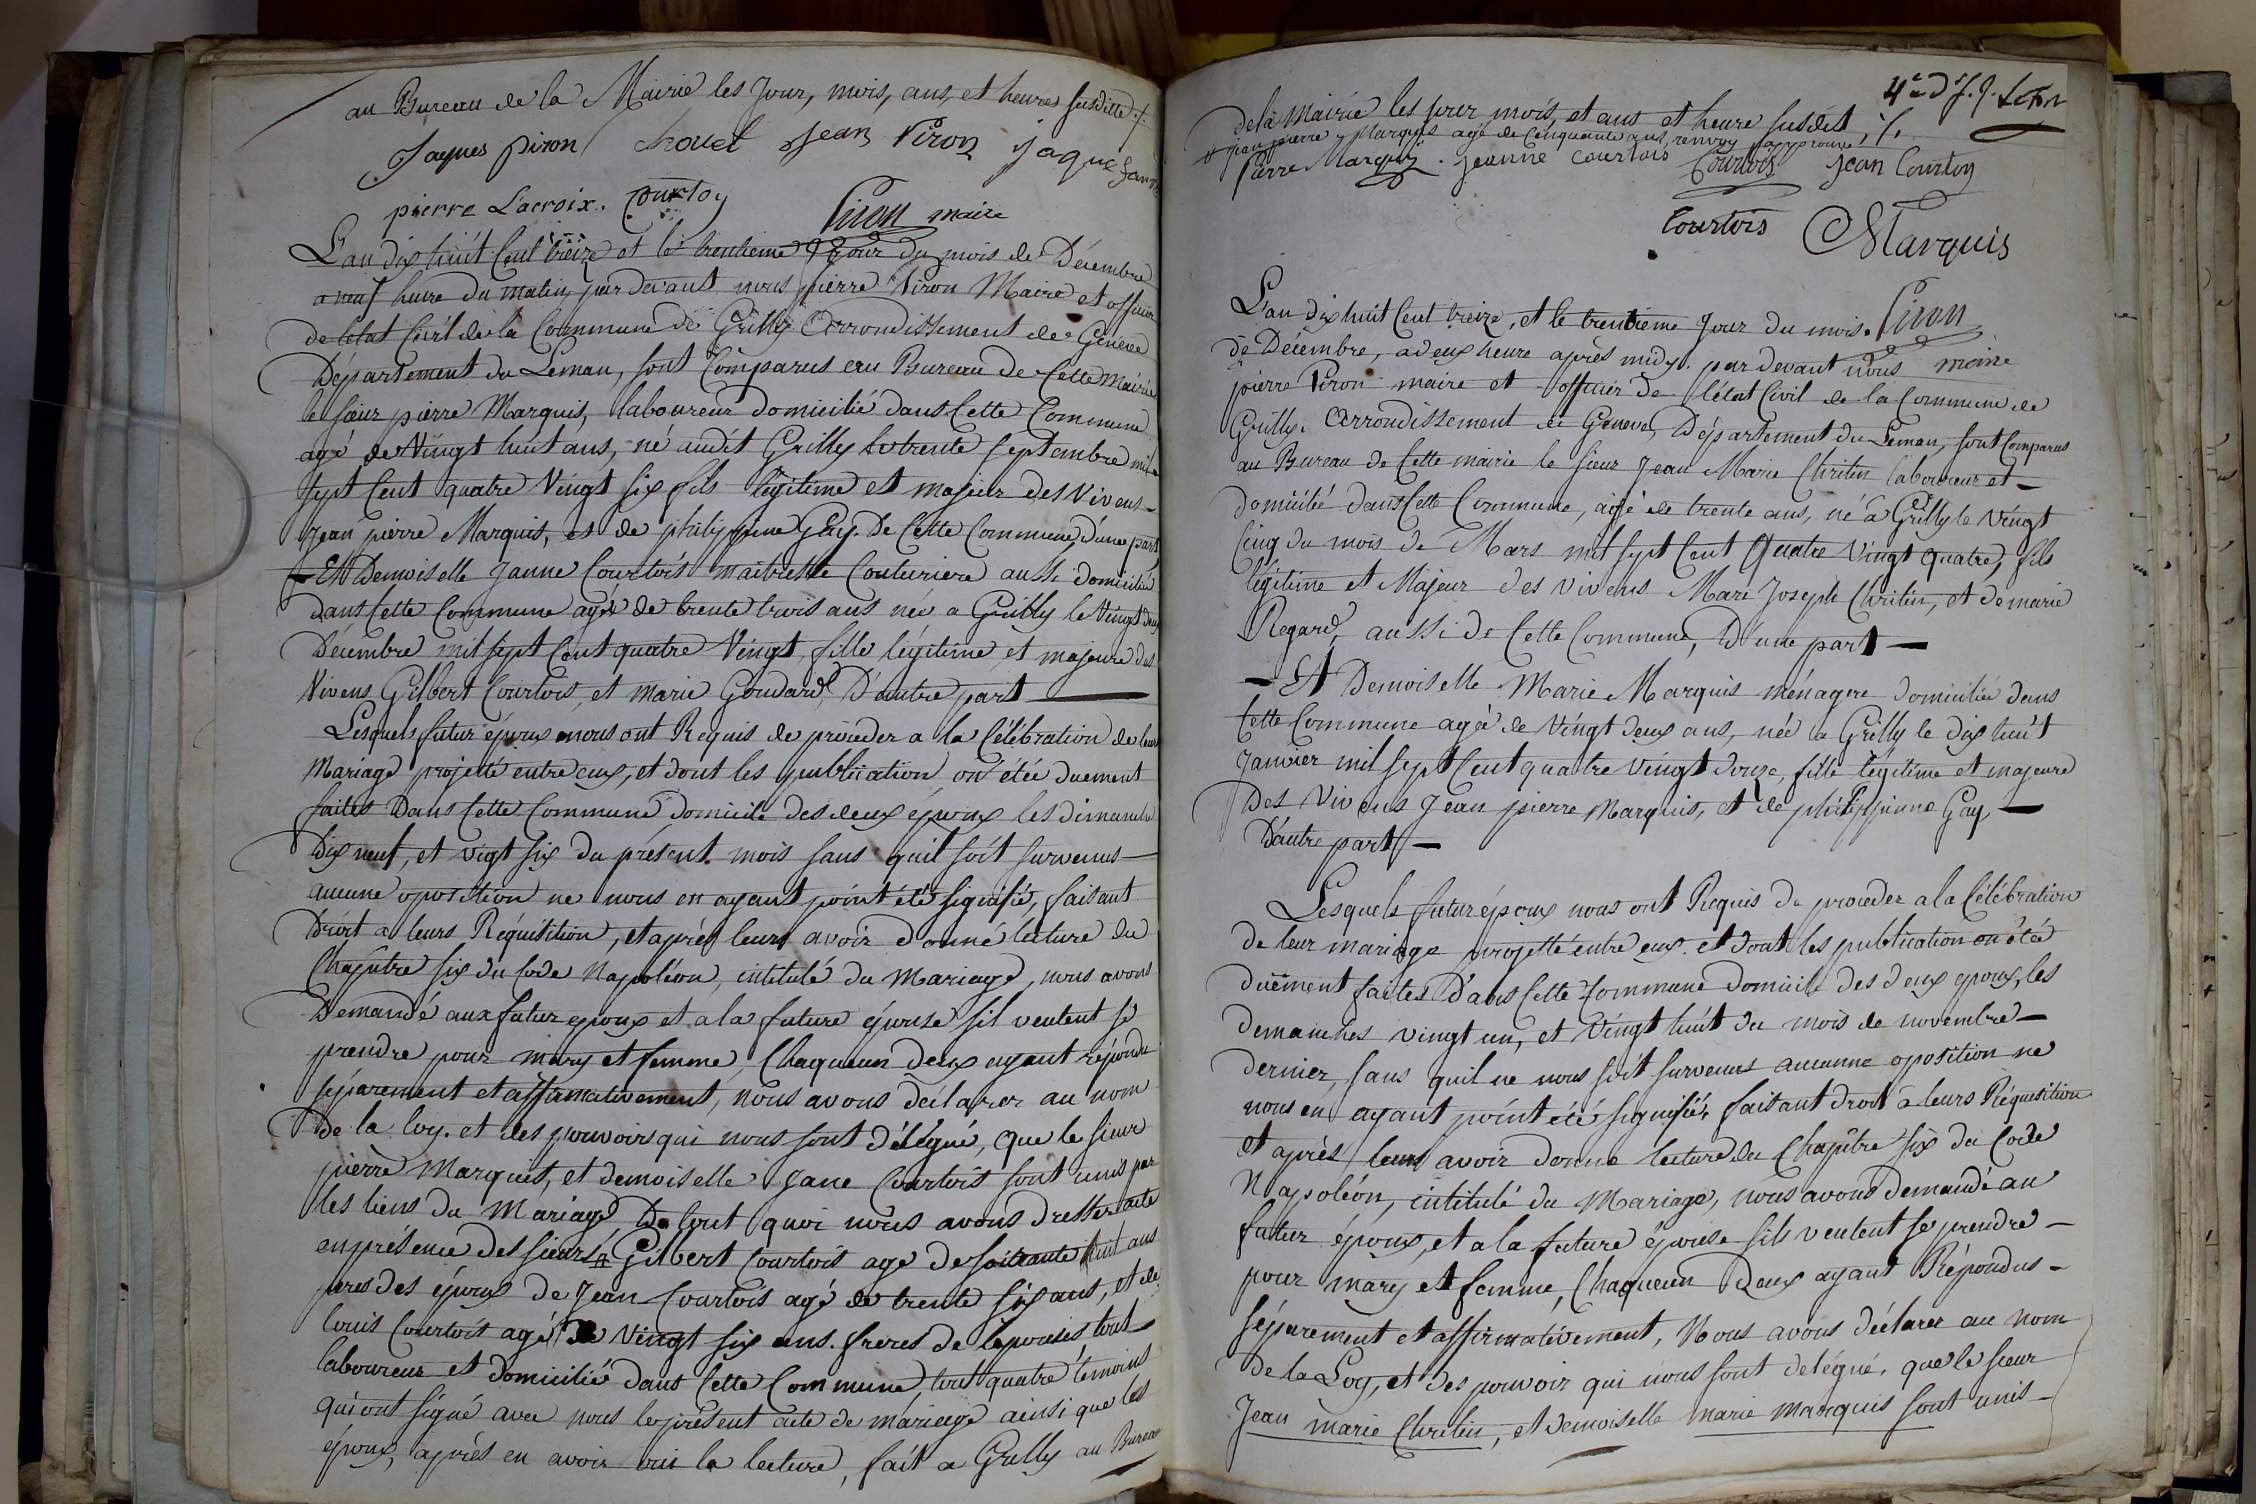 au Bureau de la Mairie les Jour, mois, ans, et heures susditte ./.
Jaques piron chouet Jean Piron jaque
pierre Lacroix. Courtoy
Piron maire
L'an dix huit Cent treize et le trentieme Jour du mois de Décembre
a neuf heure du matin, par devant nous pierre Piron Maire et officier
de l'état Civil de la Commune de Grilly Arrondissement de Geneve
Département du Leman, sont Comparus au Bureau de Cette Mairie
le sieur pierre Marquis, laboureur domicilié dans Cette Commune
agé de Vingt huit ans, né audit Grilly le trente septembre mil
sept Cent quatre Vingt six fils légitime et majeur des Vivens
Jean pierre Marquis, et de philippine Gay. De Cette Commune, d'une part
Et Demoiselle Janne Courtois maitresse Couturiere aussi domiciliée
dans Cette Commune agée de trente trois ans née a Grilly le Vingt deux
Décembre mil sept Cent quatre Vingt, fille légitime et majeure des
Vivens Gilbert Courtois, et marie Goudard D'autre part
Lesquels futur époux nous ont Requis de procéder a la Célébration de leur
Mariage projetté entre eux, et dont les publication on étée duement
faites Dans Cette Commune domicile des deux époux les dimanche
Dix neuf, et vigt six du présent mois sans quil soit survenus
aucune oposition ne nous en ayant point été signifié, faisant
Droit a leurs Réquisition, et après leurs avoir donné lecture du
Chapitre six du Code Napoléon, intitulé du Mariage, nous avons
Demandé aux futur epoux et a la future épouse sil veulent se
prendre pour mary et femme, Chaqueun deux ayant répondu
séparement et affirmativement, nous avons déclarer au nom
De la loy. et des pouvoirs qui nous sont délégué, que le sieur
pierre Marquis, et demoiselle Jane Courtois sont unis par
les liens du Mariage De tout quoi nous avons dresser acte
en présence des sieurs # Gilbert Courtois age de soixante huit ans
peres des époux de Jean Courtois agé de trente six ans, et de
louis Courtois agé de Vingt six ans. freres de l'epouses tout
laboureur et domicilié dans Cette Commune, tout quatre témoins
qui ont signé avec nous le présent acte de mariage ainsi que les
époux, après en avoir oui la lecture, fait a Grilly au Bureau
dela Mairie les jour mois, et ans et heure susdit ./.
# Jean pierre Marquis agé de Cinquante ans, renvoy approuvé
Pierre Marquis. Jeanne Courtois Courtois Jean Courtoy
Courtois Marquis
Piron
maire
L'an dix huit Cent treize, et le trentieme Jour du mois
de Décembre, a deux heure après midy. par devant nous
pierre Piron maire et officier de l'état Civil de la Commune de
Grilly. Arrondissement de Geneve, Département du Leman, sont Comparus
au Bureau de Cette mairie le sieur Jean Marie Chritin laboureur et
domicilié dans Cette Commune, agé de trente ans, né a Grilly le Vingt
Cinq du mois de Mars mil sept Cent Quatre Vingt quatre, fils
légitime et Majeur des vivens Marc Joseph Chritin, et de marie
Regard, aussi de Cette Commune, D'une part
Et Demoiselle Marie Marquis ménagere domiciliée dans
Cette Commune agée de Vingt deux ans, née a Grilly le dix huit
Janvier mil sept Cent quatre vingt douze, fille legitime et majeure
Des Vivens Jean pierre Marquis, et de philippinne Gay,
D'autre part
Lesquels futur époux nous ont Requis de procéder a la Célébration
de leur mariage projetté entre eux. et dont les publication on étée
duëment faites Dans Cette Commune domicile des deux epoux, les
demanches vingt un, et Vingt huit du mois de novembre
dernier, sans quil ne nous soit survenus aucunne oposition ne
nous en ayant point été signifiér, faisant droit a leurs Réquisition
et après leurs avoir donné lecture du Chapitre six du Code
Napoléon, intitulé du Mariage, nous avons demandé au
futur époux, et a la future épouse sils veulent se prendre
pour mary et femme, Chaqueun deux ayant Répondus
séparement et affirmativement, Nous avons déclarer au nom
de la Loy, et des pouvoir qui nous sont delégué, que le sieur
Jean marie Chritin, et demoiselle marie marquis sont unis